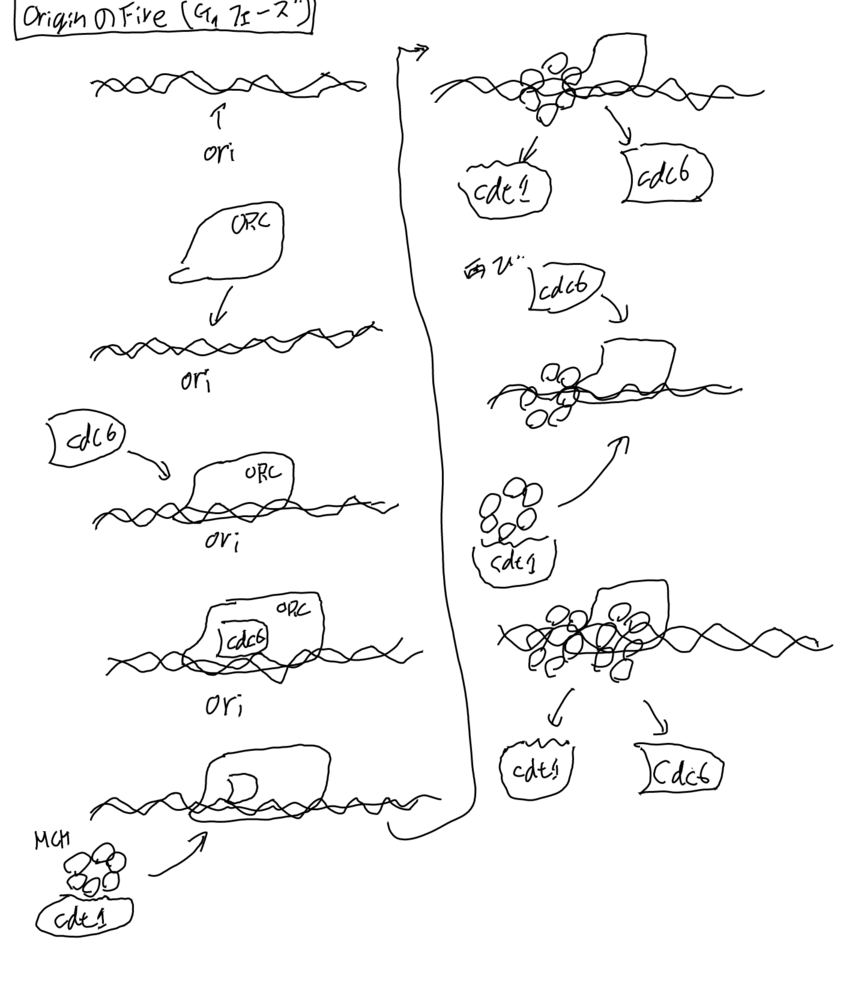 Originのfire (G1 フェーズ)
ori
ORC
ori
cdc6
ORC
ori
ORC
cdc6
ori
MCM
cdt1
cdt1
cdc6
再び
cdc6
cdt1
cdt1
Cdc6